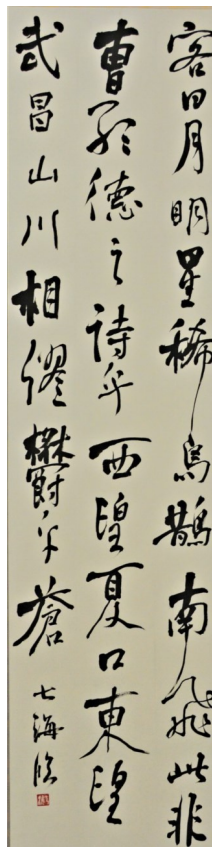 客曰月明星稀烏鵲南飛此非
曹孟德之詩乎西望夏口東望
武昌山川相繆鬱乎蒼
七海臨